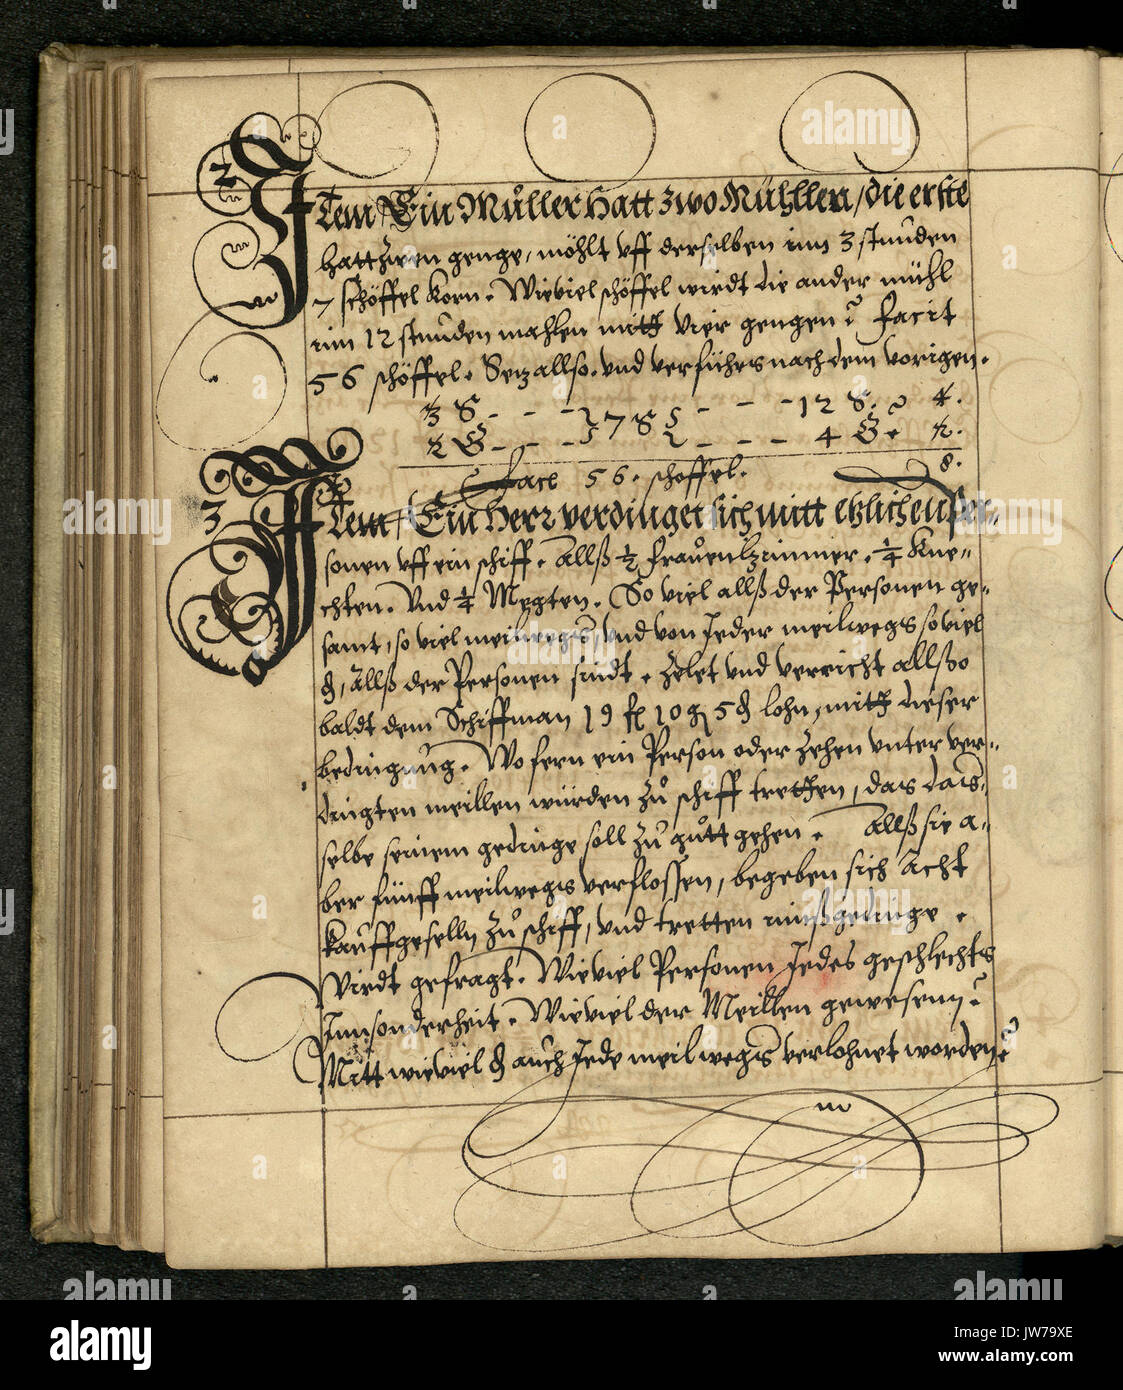 2
ITem Ein Müller hatt zwo Mühllen, die erste
hatt zwen genge, möhlt uff derselben inn 3 stunden
7 schöffel Korn. Wieviel schöffel wirdt die ander mühl
inn 12 stunden mahlen mitt vier gengen? Facit
56 schöffel. Setz allso. und verführs nach dem vorigen.
3 S. - - - 7 S - - - 12 S. 4.
2 G - - - - - - 4 G. 2.
8.
Facit 56. schöffel.
3
ITem, Ein Herr verdinget sich mitt etzlichen per-
sonen uff ein schiff. Allß ½ frauenzimmer. ¼ Kne-
chten. Und ¼ Megten. So viel allß der Personen ge-
samt, so viel meilwegs, und von Jeder meilwegs so viel
₰, allß der Personen sindt. Zelet und verricht allßo
baldt dem Schiffman 19 fl 10 g 5 ₰ lohn, mitt dieser
bedingung. Wo fern ein Person oder Zehen unter ver-
dingten meillen würden zu schiff tretten, das das-
selbe seinem gedinge soll zu gutt gehen. Allß sie a-
ber fünff meilwegs verflossen, begeben sich Acht
Kauffgeselln zu schiff, und tretten inns gedinge.
Wirdt gefragt. Wieviel Personen Jedes geschlechts
Innsonderheit. Wieviel der Meillen gewesenn?
Mitt wieviel ₰ auch Jede meilwegs verlohnet worden?
alamy
alamy
Image ID: JW79XE
www.alamy.com